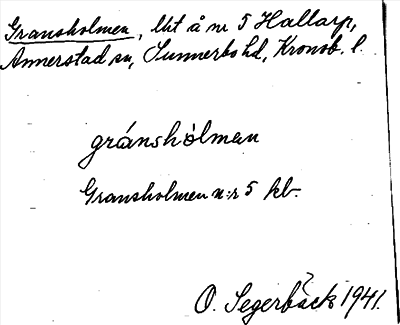 Gransholmen, lht å nr 5 Hallarp,
Annerstad sn, Sunnerbo hd, Kronob. l.
gránshòlman
Gransholmen n:r 5 kb.
O. Segerbäck 1941.